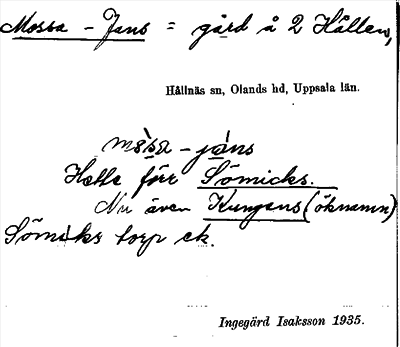 Mossa - Jans = gård å 2 Hållen,
Hållnäs sn, Olands hd, Uppsala län.
mås̀a - jáns
Hette förr Sömicks.
Nu även Kungens (öknamn)
Sömicks torp ek.
Ingegärd Isaksson 1935.